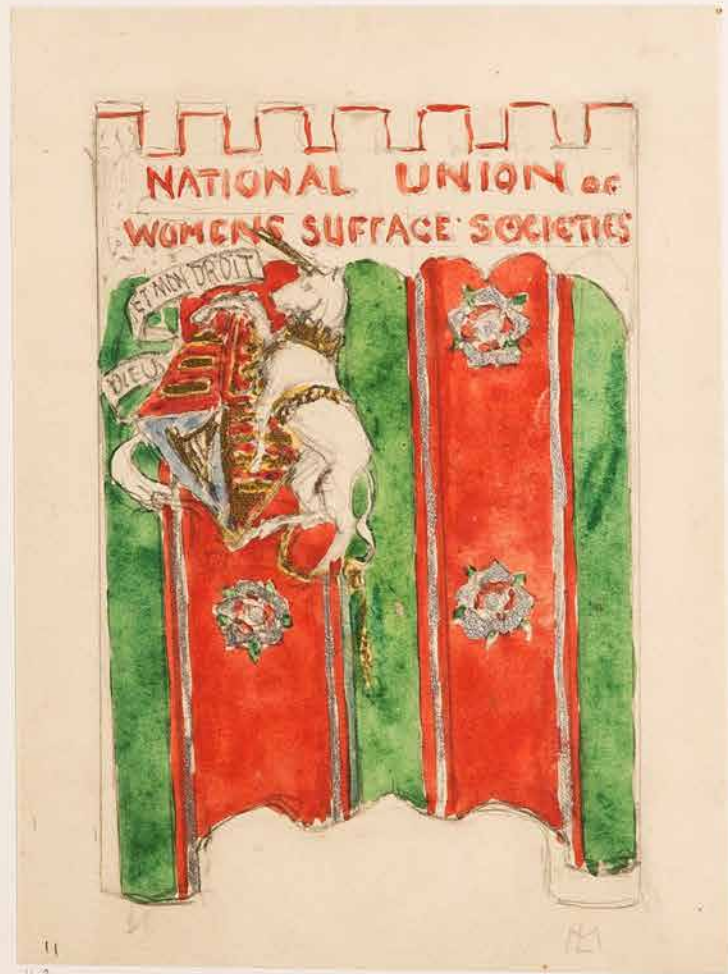 NATIONAL UNION OF
WOMENS SUFFAGE SOCIETIES
ET MON DROIT
DIEU
11